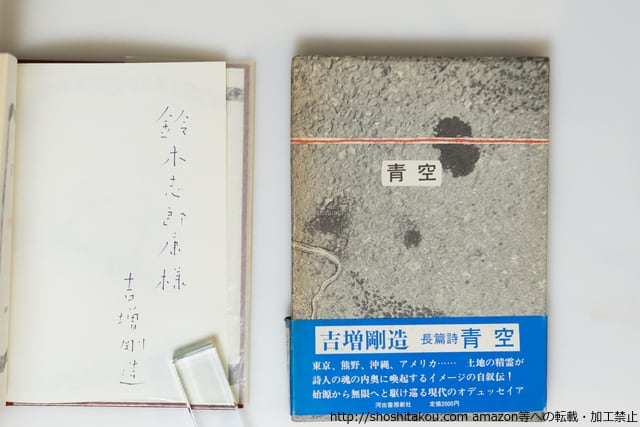 鈴木志郎康様
吉増剛造
青空
吉増剛造 長篇詩 青空
東京、熊野、沖縄、アメリカ…… 土地の精霊が
詩人の魂の内奥に喚起するイメージの自叙伝！
始源から無限へと駆け巡る現代のオデュッセイア
河出書房新社 定価2000円
http://shoshitakou.com amazon等への転載・加工禁止